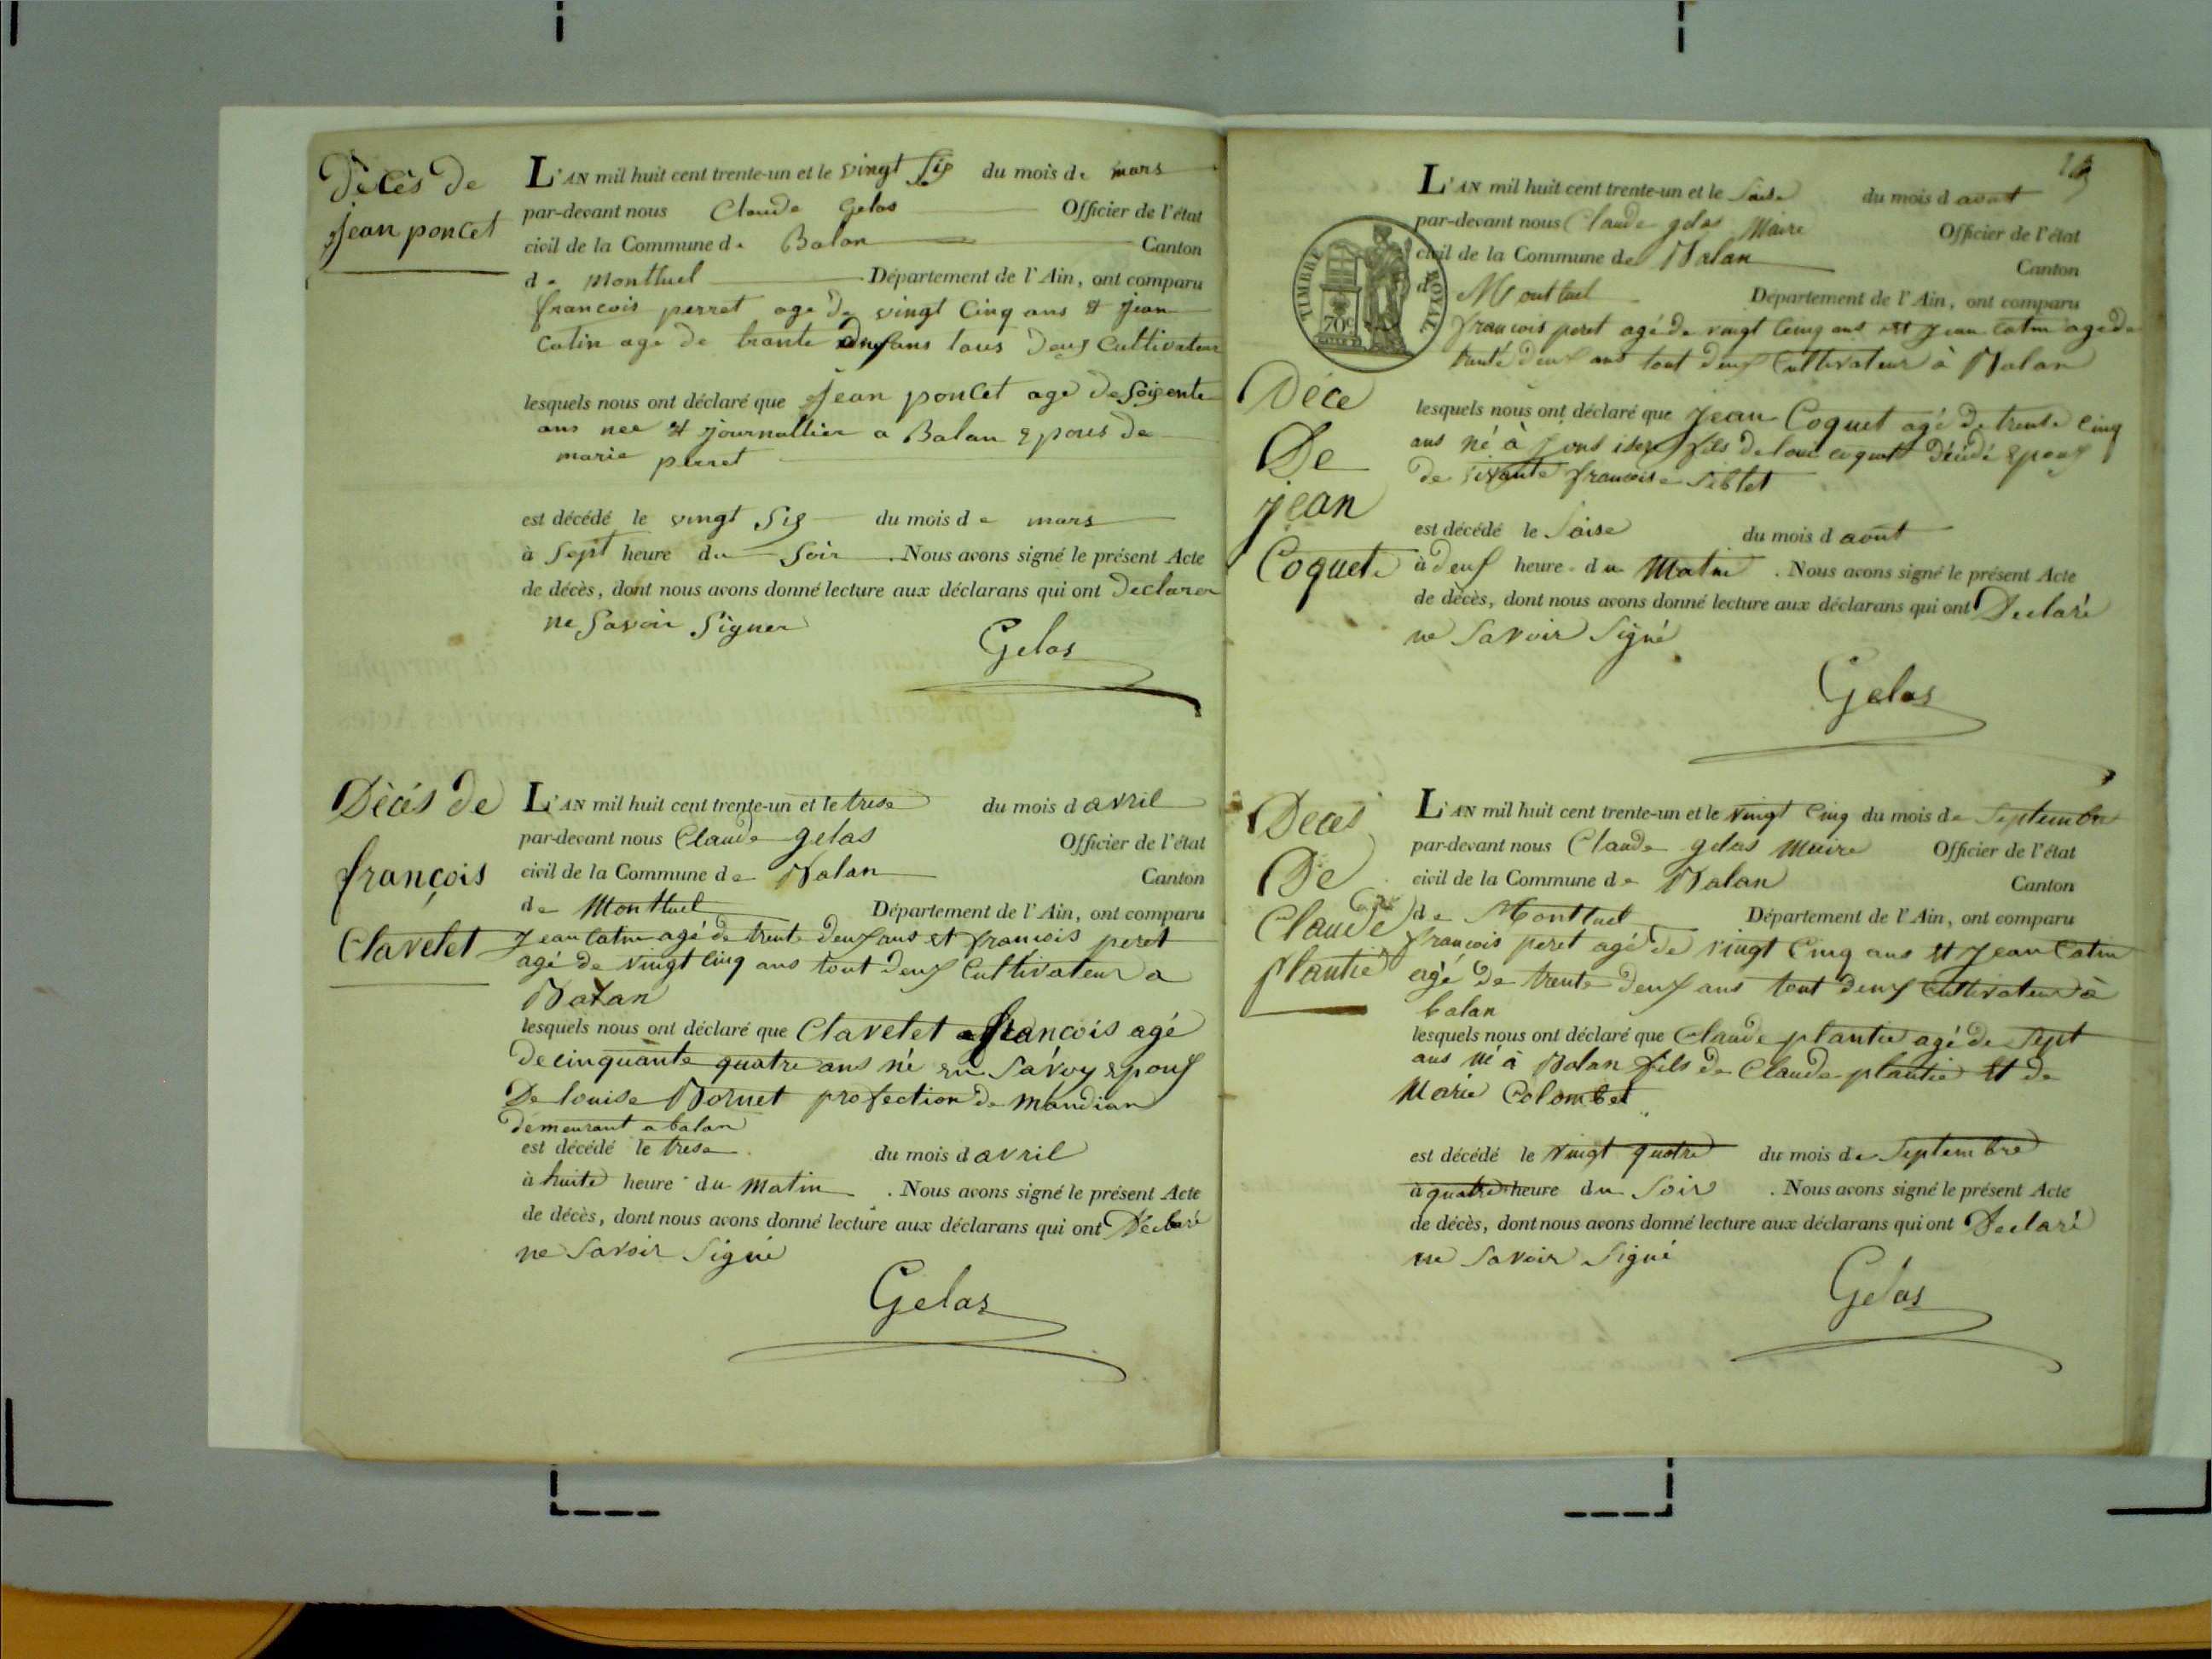 Décès de
jean poncet
L'AN mil huit cent trente-un et le vingt six du mois de mars
par-devant nous Claude Gelas Officier de l'état
civil de la Commune de Balan Canton
de Montluel Département de l'Ain, ont comparu
francois perret age de vingt Cinq ans et jean
Catin age de trante deux ans tous deux Cultivateur
lesquels nous ont déclaré que jean poncet age de soixente
ans nee et journallier a Balan epous de
marie perret
est décédé le vingt six du mois de mars
à sept heure du soir . Nous avons signé le présent Acte
de décès, dont nous avons donné lecture aux déclarans qui ont Declarer
ne savoir signer
Gelas
Décés de
françois
Clavelet
L'AN mil huit cent trente-un et le trese du mois d avril
par-devant nous Claude gelas Officier de l'état
civil de la Commune de Balan Canton
de Montluel Département de l'Ain, ont comparu
jean Catin agé de trente deux ans et francois peret
agé de vingt cinq ans tout deux Cultivateur a
Balan
lesquels nous ont déclaré que Clavelet francois agé
de cinquante quatre ans né en Savoy epoux
De louise Bornet profection de mandian
demeurant a balan
est décédé le trese du mois d avril
à huite heure du matin . Nous avons signé le présent Acte
de décès, dont nous avons donné lecture aux déclarans qui ont Déclaré
ne savoir signé
Gelas
TIMBRE ROYAL
70c
Déce
De
jean
Coquet
L'AN mil huit cent trente-un et le saise du mois d aout
par-devant nous Claude gelas Maire Officier de l'état
civil de la Commune de Balan Canton
d Montluel Département de l'Ain, ont comparu
francois peret agé de vingt cinq ans et jean Catin agé de
trante deux ans tout deux Cultivateur à Balan
lesquels nous ont déclaré que jean Coquet agé de trente cinq
ans né à fils de louis coquet Décédé epoux
de francoise siblet
est décédé le saise du mois d aout
à deux heure du Matin . Nous avons signé le présent Acte
de décès, dont nous avons donné lecture aux déclarans qui ont Declaré
ne savoir signé
Gelas
Deces
De
Claude
plantié
L'AN mil huit cent trente-un et le vingt cinq du mois de septembre
par-devant nous Claude gelas Maire Officier de l'état
civil de la Commune de Balan Canton
de Montluel Département de l'Ain, ont comparu
francois peret agé de vingt Cinq ans et jean Catin
agé de trente deux ans tout deux Cultivateur à
balan
lesquels nous ont déclaré que Claude plantié agé de sept
ans né à Balan fils de Claude plantié et de
Marie Colombet
est décédé le vingt quatre du mois de septembre
à quatre heure du soir . Nous avons signé le présent Acte
de décès, dont nous avons donné lecture aux déclarans qui ont Declaré
ne savoir signé
Gelas